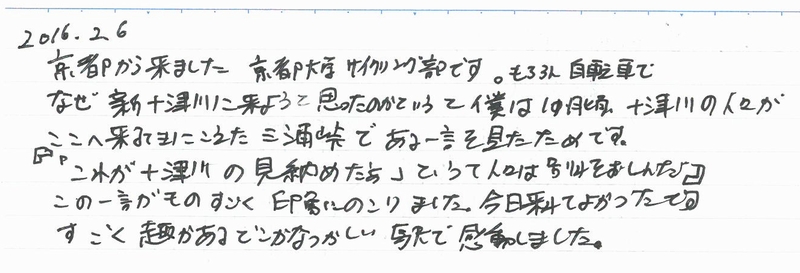 2016.2.6
京都から来ました 京都大学サイクリング部です。もちろん自転車で
なぜ新十津川に来ようと思ったのかというと僕は10月頃、十津川の人々が
ここへ来るときにこえた三浦峠である一言を見たためです。
『「これが十津川の見納めだよ」といって人々は別れをおしんだ』
この一言がものすごく印象にのこりました。今日来てよかったです
すごく趣があるでなつかしい駅で感動しました。